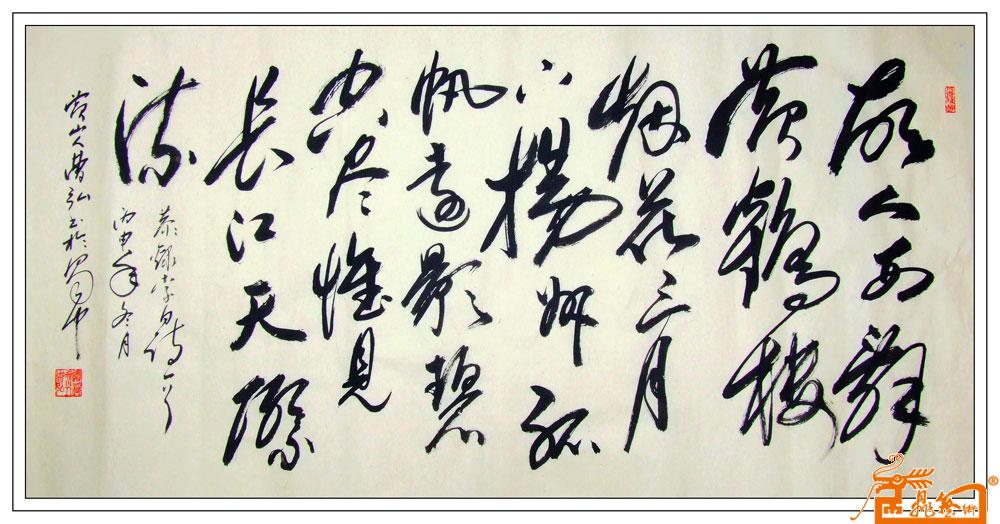 故人西辞
黄鹤楼
烟花三月
下揚州孤
帆遠影碧
空尽惟見
長江天際
流
恭録李白詩一首
丙申年冬月
黄山曹弘書於蜀中